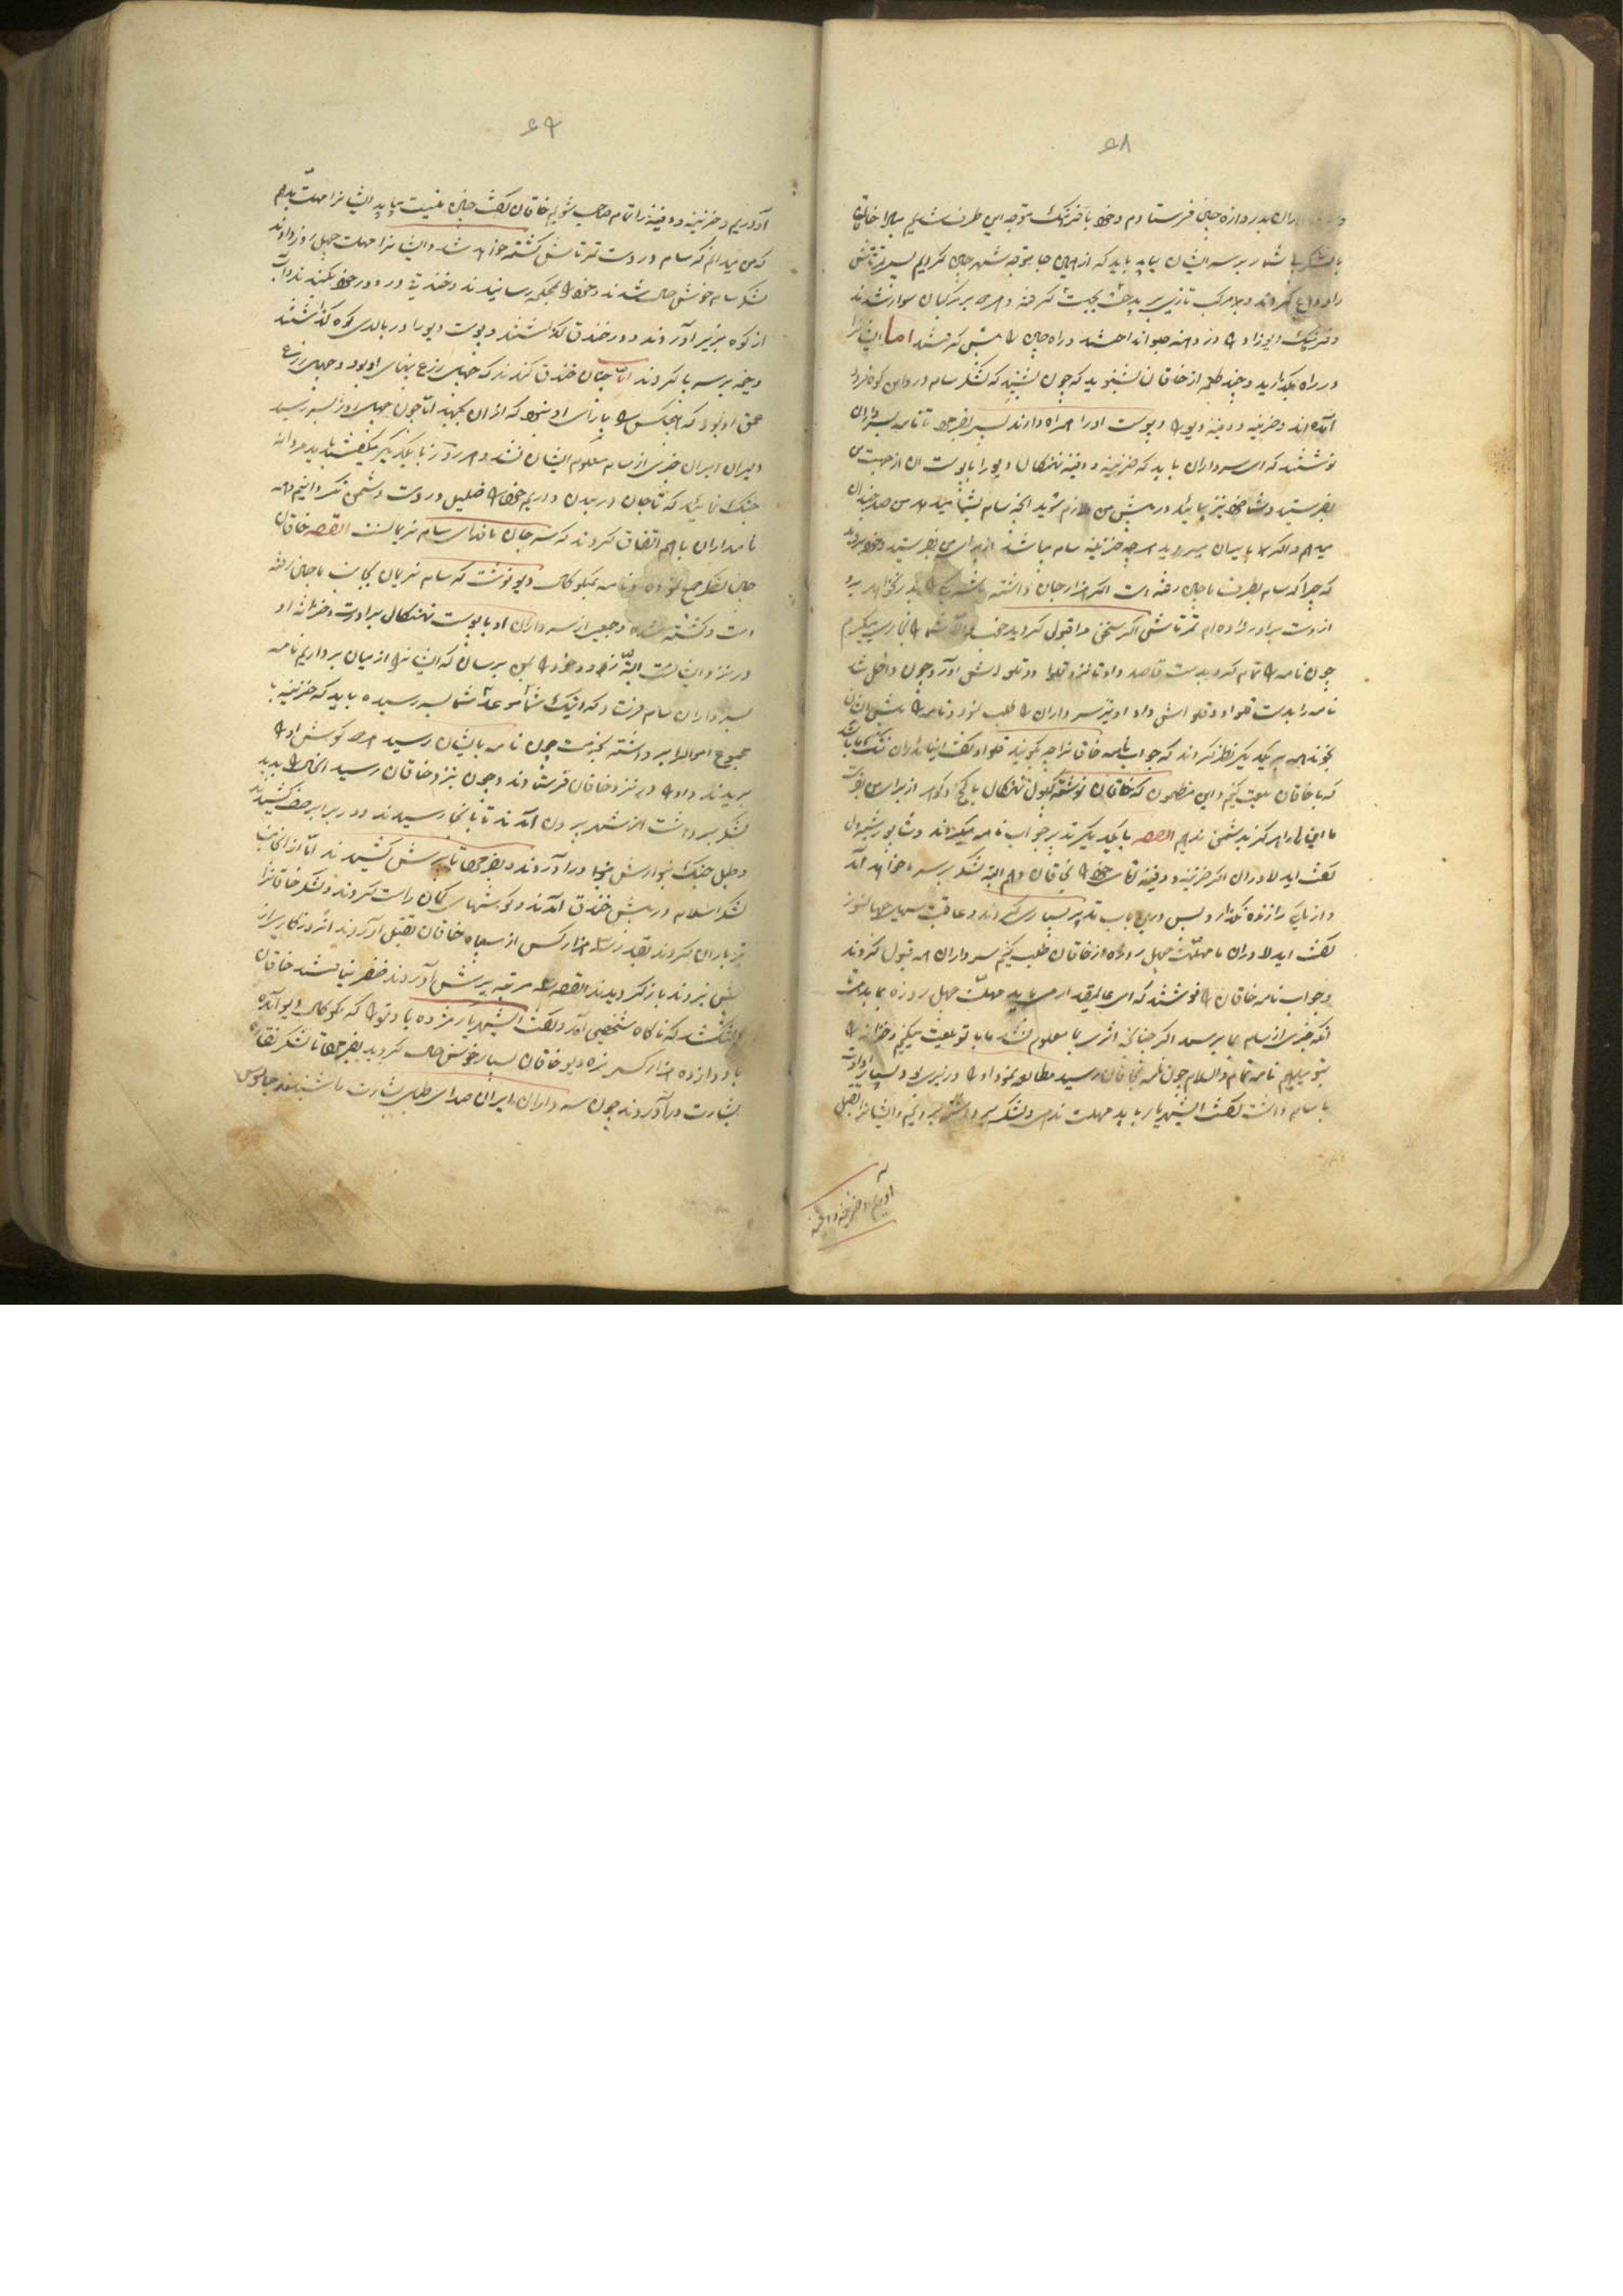 ۶۸
داران بدروازه چین فرستادم و خود با فرهنک متوجه این طرف شدیم مبادا خاقان
با لشکر بی شمار بر سر ایشان بیاید باید که از همین جا متوجه شهر چین کردیم پس تمرتاش
را وداع کردند و بر مرکب
و فرهنک دیوزاد را در دامنه راه چین را پیش کرفتند اما ایشانرا
در راه بکذارید و چند کلمه از خاقان بشنوید که چون بشنید که لشکر سام در دامن کوه فرود
آمده اند و خزینه و دفینه دیو را و پوست او را همراه دارند پس بفرمود تا نامه بسرداران
نوشتند که ای سرداران باید که خزینه و دفینه نهنکال دیو را با پوست آن از جهت من
بفرستید و شما خود نیز بیائید در پیش من ملازم شوید آنچه سام بشما میداد من صد چندان
میدهم و اکر نه هر چه خزینه سام میباشد از برای من بفرستید و خود بروید
که چرا که سام بطرف ماچین رفته است اکر هزار جان داشته باشد یکی را بدر نخواهد برد
از دست برادرزاده ام تمرتاش اکر سخن مرا قبول کردید خوب والا شما را
چون نامه را تمام کرد بدست قاصد داد تا نزد قلواد و قلوش آورد چون داخل شد
نامه را بدست قلواد و قلوش داد او نیز سرداران را طلب نمود و نامه را پیش ایشان
بخواند همه بر یکدیکر نظر کردند که جواب نامه خاقانرا چه کویند قلواد کفت ای نامداران ننک ما باشد
که با خاقان بیعت کنیم و این مظلمون که خاقان نوشته کلبول نهنکال با کنج و کوهر از برای من بفرست
ما این را هرکز بدشمن ندهیم القصه با یکدیکر تدبیر جواب نامه میکردند و شاپور شیردل
کفت ایدلاوران اکر خزینه و دفینه سام را بخاقان دهیم البته لشکر بر سر ما خواهد آمد
و از ما یکی را زنده نکذارد پس درین باب تدبیر بسیاری کردند و عاقبت
کفت ایدلاوران ما مهلت چهل روزه از خاقان طلب کنیم سرداران همه قبول کردند
و جواب نامه خاقان را نوشتند که ای عالیمقدار می باید مهلت چهل روزه بما بدهی
تا که خبری از سام بما برسد اکر چنانچه اثری بما معلوم نشد ما با تو بیعت میکنیم و خزانه را
بتو میدهیم نامه تمام والسلام چون نامه بخاقان رسید مطالعه نمود او را وزیری بود و بسیار ارادت
با سام داشت کفت ایشهریار باید مهلت ندهی و لشکر بر داشته برویم و ایشانرا بقتل
آوریم و خزینه و دفینه
۶۹
آوریم و خزینه و دفینه را تمام صاحب شویم خاقان کفت چنین نیست میباید ایشانرا مهلت بدهم
که من میدانم که سام در دست تمرتاش کشته خواهد شد و ایشانرا مهلت چهل روز دادند
لشکر سام خوش حال شدند و خود را بمحکمی رسانیدند و خندقی در دور خود بکندند و آب
از کوه بزیر آوردند و در خندق کذاشتند و پوست دیو را در بالای کوه کذاشتند
و خیمه بر سر پا کردند اما چنان خندق کندند که چهل زرع پهنای او بود و چهل زرع
عمق او بود که هیچکس را یارای او نبود که از آن بجهد اما چون چهل روز بسر رسید
دلیران ایران خبری از سام معلوم ایشان نشد و هر روز با یکدیکر میکفتند باید مردانه
جنک نمائید که تا جان در بدن داریم خود را ذلیل در دست دشمن نکردانیم و همه
نامداران با هم اتفاق کردند که سر و جان ما فدای سام نریمانست القصه خاقان
چین لشکر جمع نموده و نامه بمکوکال دیو نوشت که سام نریمان بجانب ماچین رفته
است و کشته شده و جمعی از سرداران او با پوست نهنکال برادرت و خزانه او
در نزد ایشانست البته زود خود را بمن برسان که ایشانرا از میان برداریم نامه
بسرداران سام فرستاد که اینک شما موعد شما بسر رسیده باید که خزینه با
مجموع اموال را برداشته بخدمت چون نامه بایشان رسید هر دو کوش او را
بریدند و او را نزد خاقان فرستادند و چون بنزد خاقان رسید آنحال را بدید
لشکر برداشت از شهر بیرون آمدند تا بآنجا رسیدند و در برابر صف کشیدند
و طبل جنک بنوازش در آوردند و بفرمود تا یرش کشیدند اما از آنجانب
لشکر اسلام در پیش خندق آمدند و کوشهای کمان راست کردند و لشکر خاقانرا
تیر باران کردند بقدر هزار کس از سپاه خاقان بقتل آوردند آنروز کاری از
پیش نبردند باز کردیدند القصه مرتبه یرش آوردند ظفر نیافتند خاقان
که ناکاه شخصی آمد و کفت ایشهریار مژده باد تو را که مکوکال دیو آمده
با دوازده هزار کس نره دیو خاقان بسیار خوش حال کردید بفرمود تا لشکر نقاره
بشارت در آوردند چون سرداران ایران صدای طبل بشارت را شنیدند جاسوس